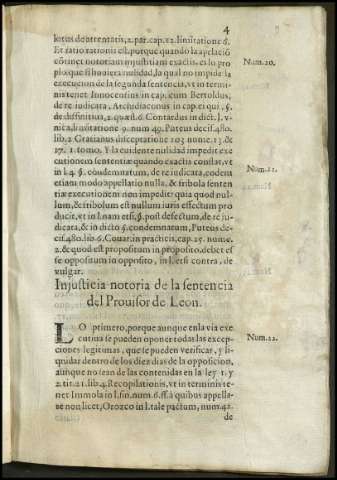 4
lotus de attentatis, 2. par. cap. 12. limitatione 6.
Et ratio rationis est, porque quando la apelaciō
cōtinet notoriam injustitiam exactis, es lo pro
pio que si huuiera nulidad, la qual no impide la
execucion de la segunda sentencia, vt in termi-
nis tenet Innocentius in cap. cum Bertoldus,
de re iudicata, Archidiaconus in cap. ei qui, §.
de diffinitiua, 2. quæst. 6. Contardus in dict. l. v-
nica, limitatione 9. num. 49. Puteus decis. 480.
lib. 2. Gratianus disceptatione 103. num. 15. &
27. 1. tomo. Y la euidente nulidad impedit exe
cutionem sententiæ quando exactis constat, vt
in l. 4. §. condemnatum, de re iudicata, eodem
etiam modo appellatio nulla, & friuola senten
tiæ executionem non impedit quia quod nul-
lum, & friuolum est nullum iuris effectum pro
ducit, vt in l. nam etsi, §. post defectum, de re ju
dicata, & in dicto §. condemnatum, Puteus de-
cis. 480. lib. 6. Couar. in practicis, cap. 25. nume.
2. & quod est propositum in proposito, debet es
se oppositum in opposito, in l. etsi contra, de
vulgar.
Num. 20.
Num. 21.
Injusticia notoria de la sentencia
del Prouisor de Leon.
LO primero, porque aunque en la via exe
cutiua se pueden oponer todas las excep-
ciones legitimas, que se pueden verificar, y li-
quidar dentro de los diez dias de la oposicion,
aunque no sean de las contenidas en la ley 1. y
2. tit. 21. lib. 4. Recopilationis, vt in terminis te-
net Immola in l. fin. num. 6. ff. à quibus appella-
re non licet, Orozco in l. tale pactum, num. 42.
de
Num. 22.